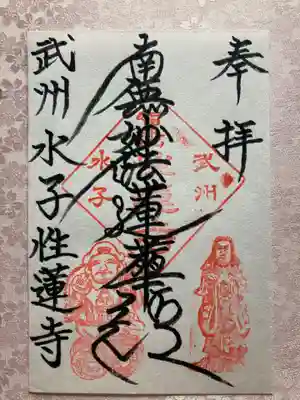 奉拝
武州
南無妙法蓮華経
水子
武州水子性蓮寺